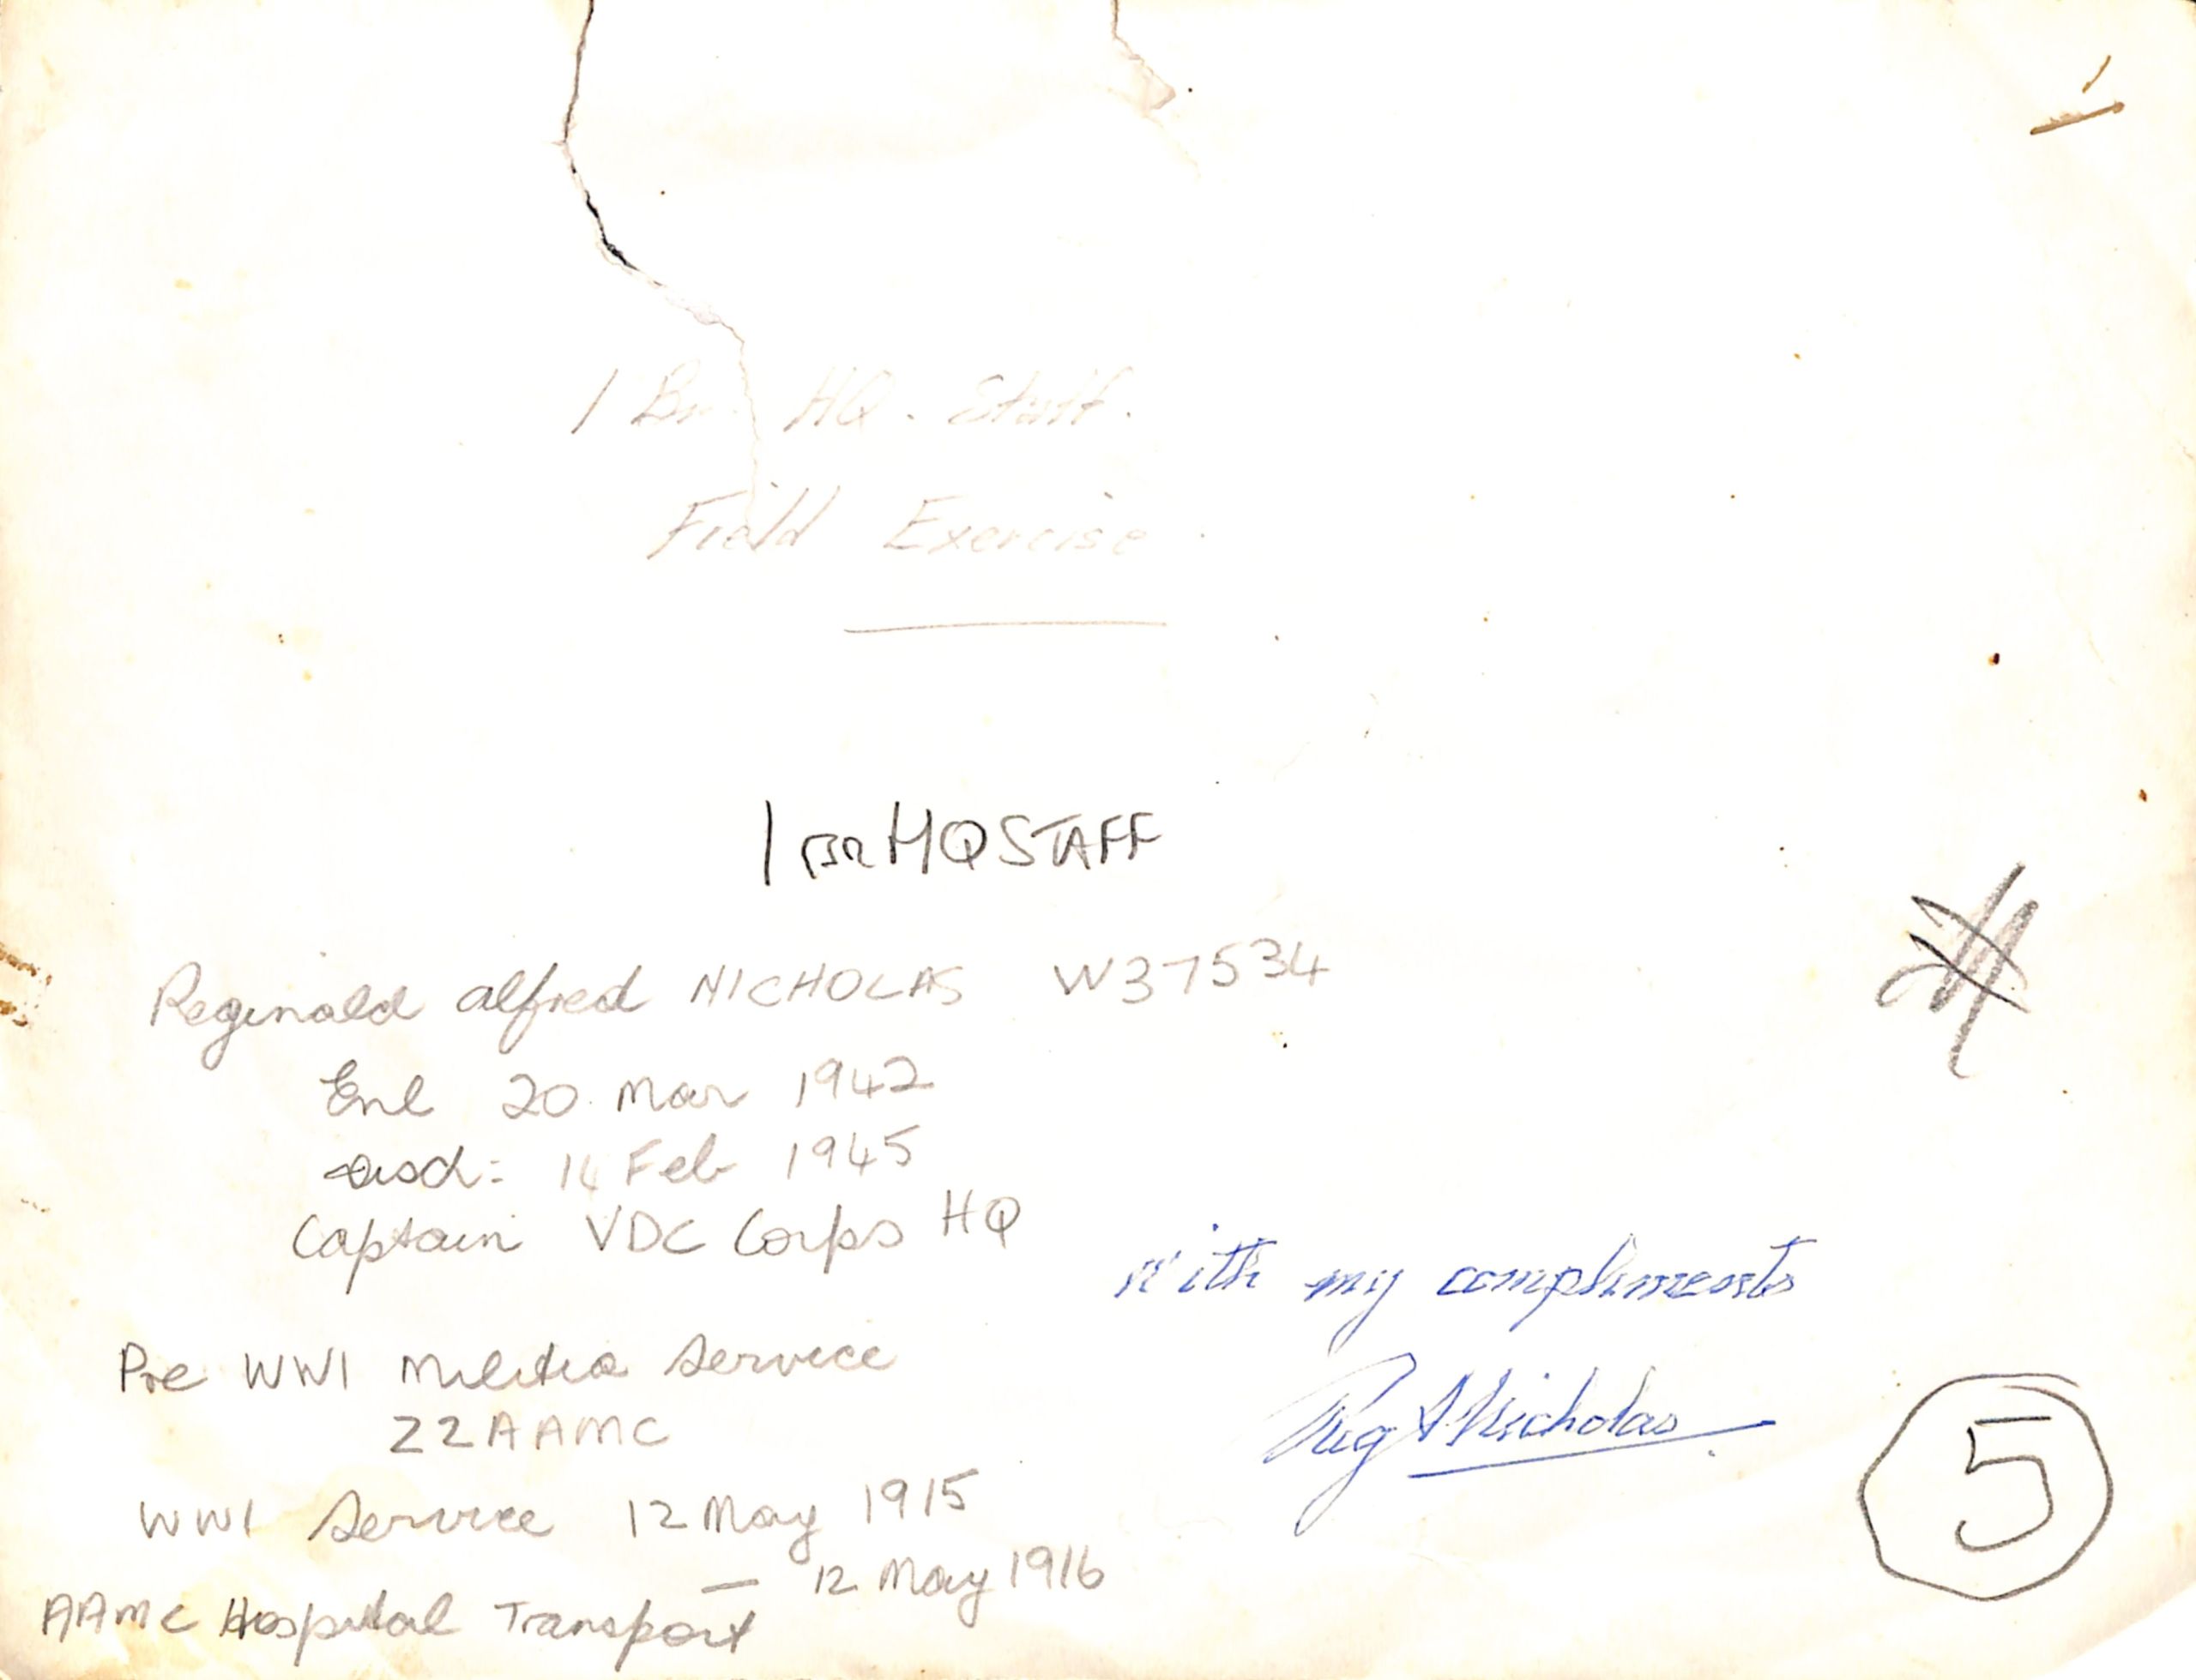 1 Bn HQ. Staff.
Field Exercise
1 Bn HQ STAFF
Reginald Alfred NICHOLAS W37534
Enl 20 Mar 1942
Disd: 14 Feb 1945
Captain VDC Corps HQ
with my compliments
Pre WW1 Militia Service
Reg Nicholas
22AAMC
5
WW1 Service 12 May 1915
— 12 May 1916
AAMC Hospital Transport